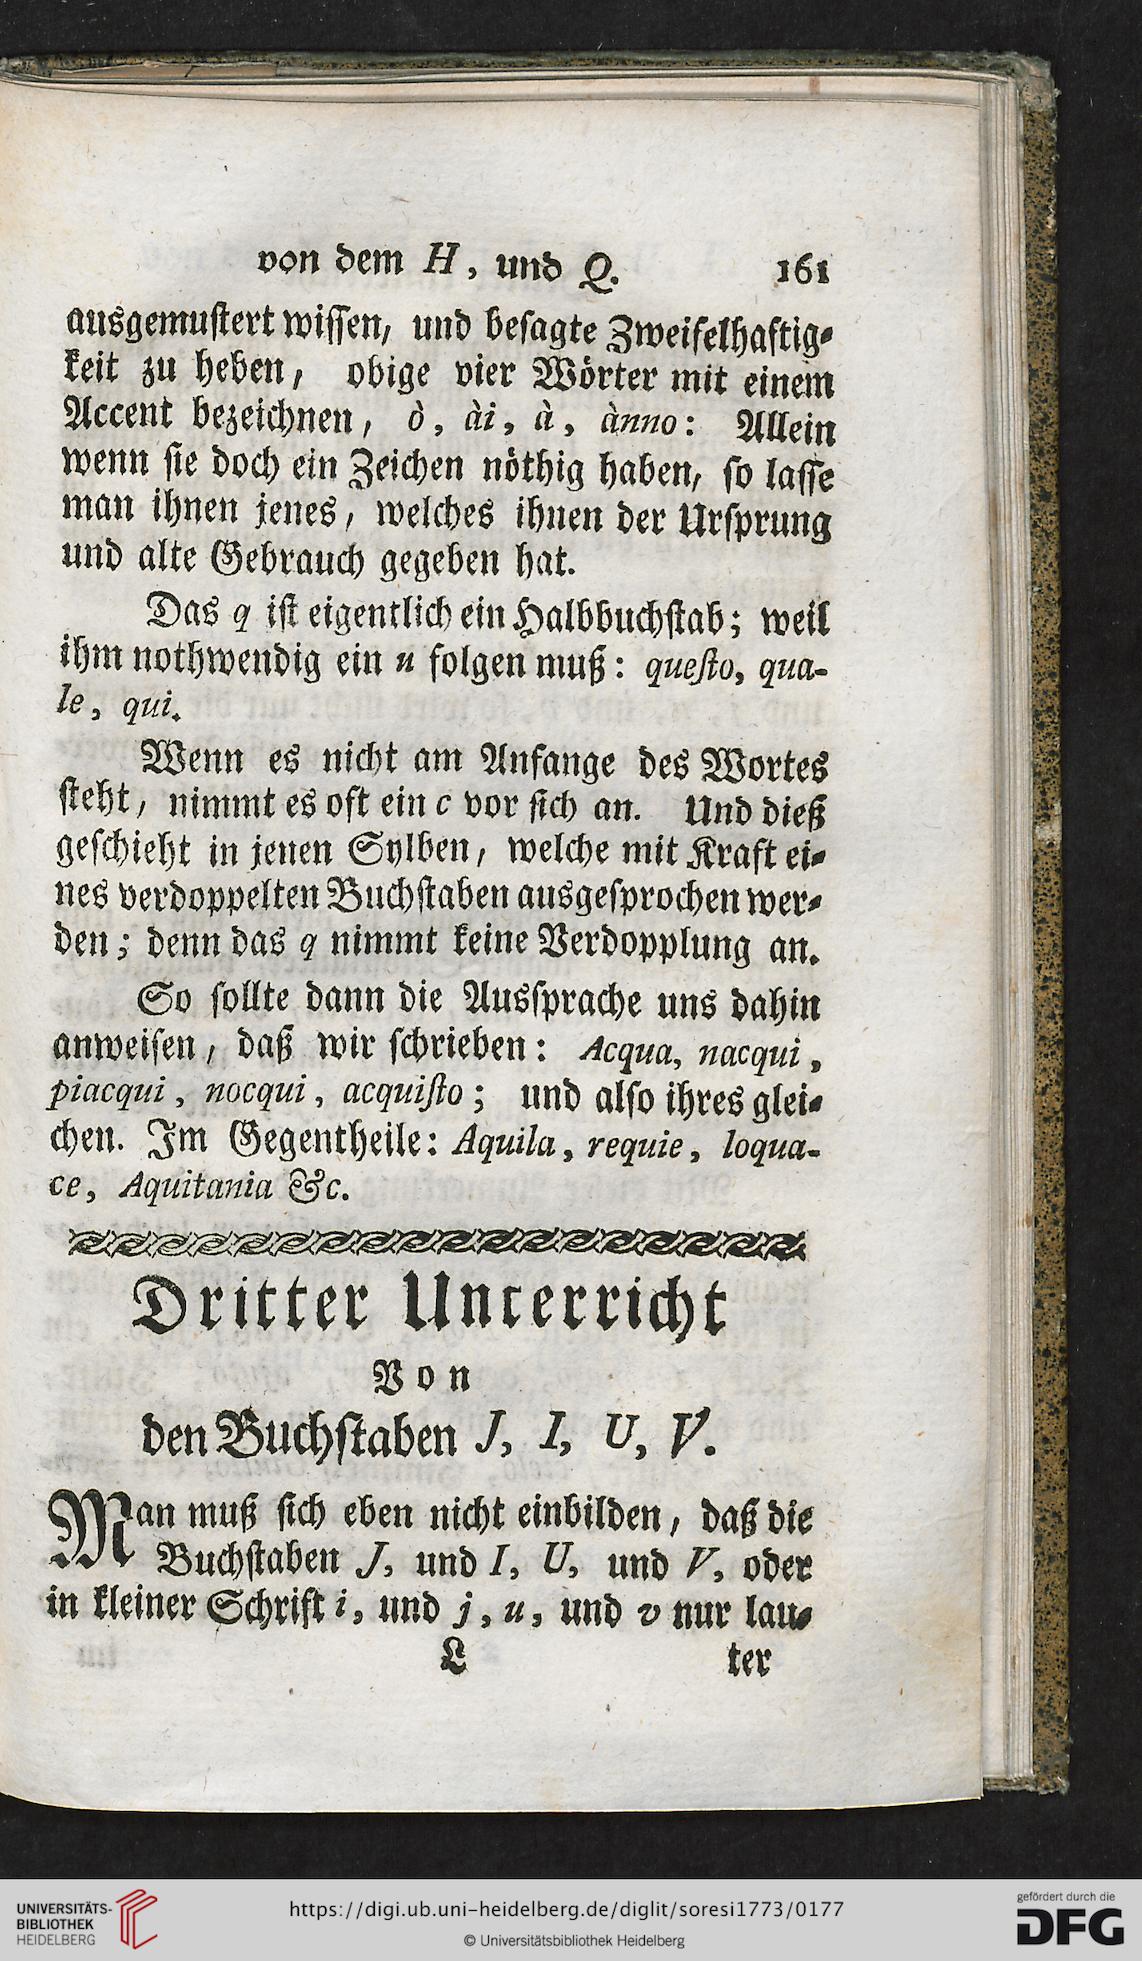 von dem H, und Q. 161
ausgemustert wissen, und besagte Zweifelhaftig-
keit zu heben, obige vier Wörter mit einem
Accent bezeichnen, ò, ài, à, ànno: Allein
wenn sie doch ein Zeichen nöthig haben, so lasse
man ihnen jenes, welches ihnen der Ursprung
und alte Gebrauch gegeben hat.
Das q ist eigentlich ein Halbbuchstab; weil
ihm nothwendig ein u folgen muß: questo, qua-
le, qui.
Wenn es nicht am Anfange des Wortes
steht, nimmt es oft ein c vor sich an. Und dieß
geschieht in jenen Sylben, welche mit Kraft ei-
nes verdoppelten Buchstaben ausgesprochen wer-
den; denn das q nimmt keine Verdopplung an.
So sollte dann die Aussprache uns dahin
anweisen, daß wir schrieben: Acqua, nacqui,
piacqui, nocqui, acquisto; und also ihres glei-
chen. Im Gegentheile: Aquila, requie, loqua-
ce, Aquitania &c.
Dritter Unterricht
Von
den Buchstaben J, I, U, V.
Man muß sich eben nicht einbilden, daß die
Buchstaben J, und I, U, und V, oder
in kleiner Schrift i, und j, u, und v nur lau-
L ter
UNIVERSITÄTS-
BIBLIOTHEK
HEIDELBERG
https://digi.ub.uni-heidelberg.de/diglit/soresi1773/0177
© Universitätsbibliothek Heidelberg
gefördert durch die
DFG